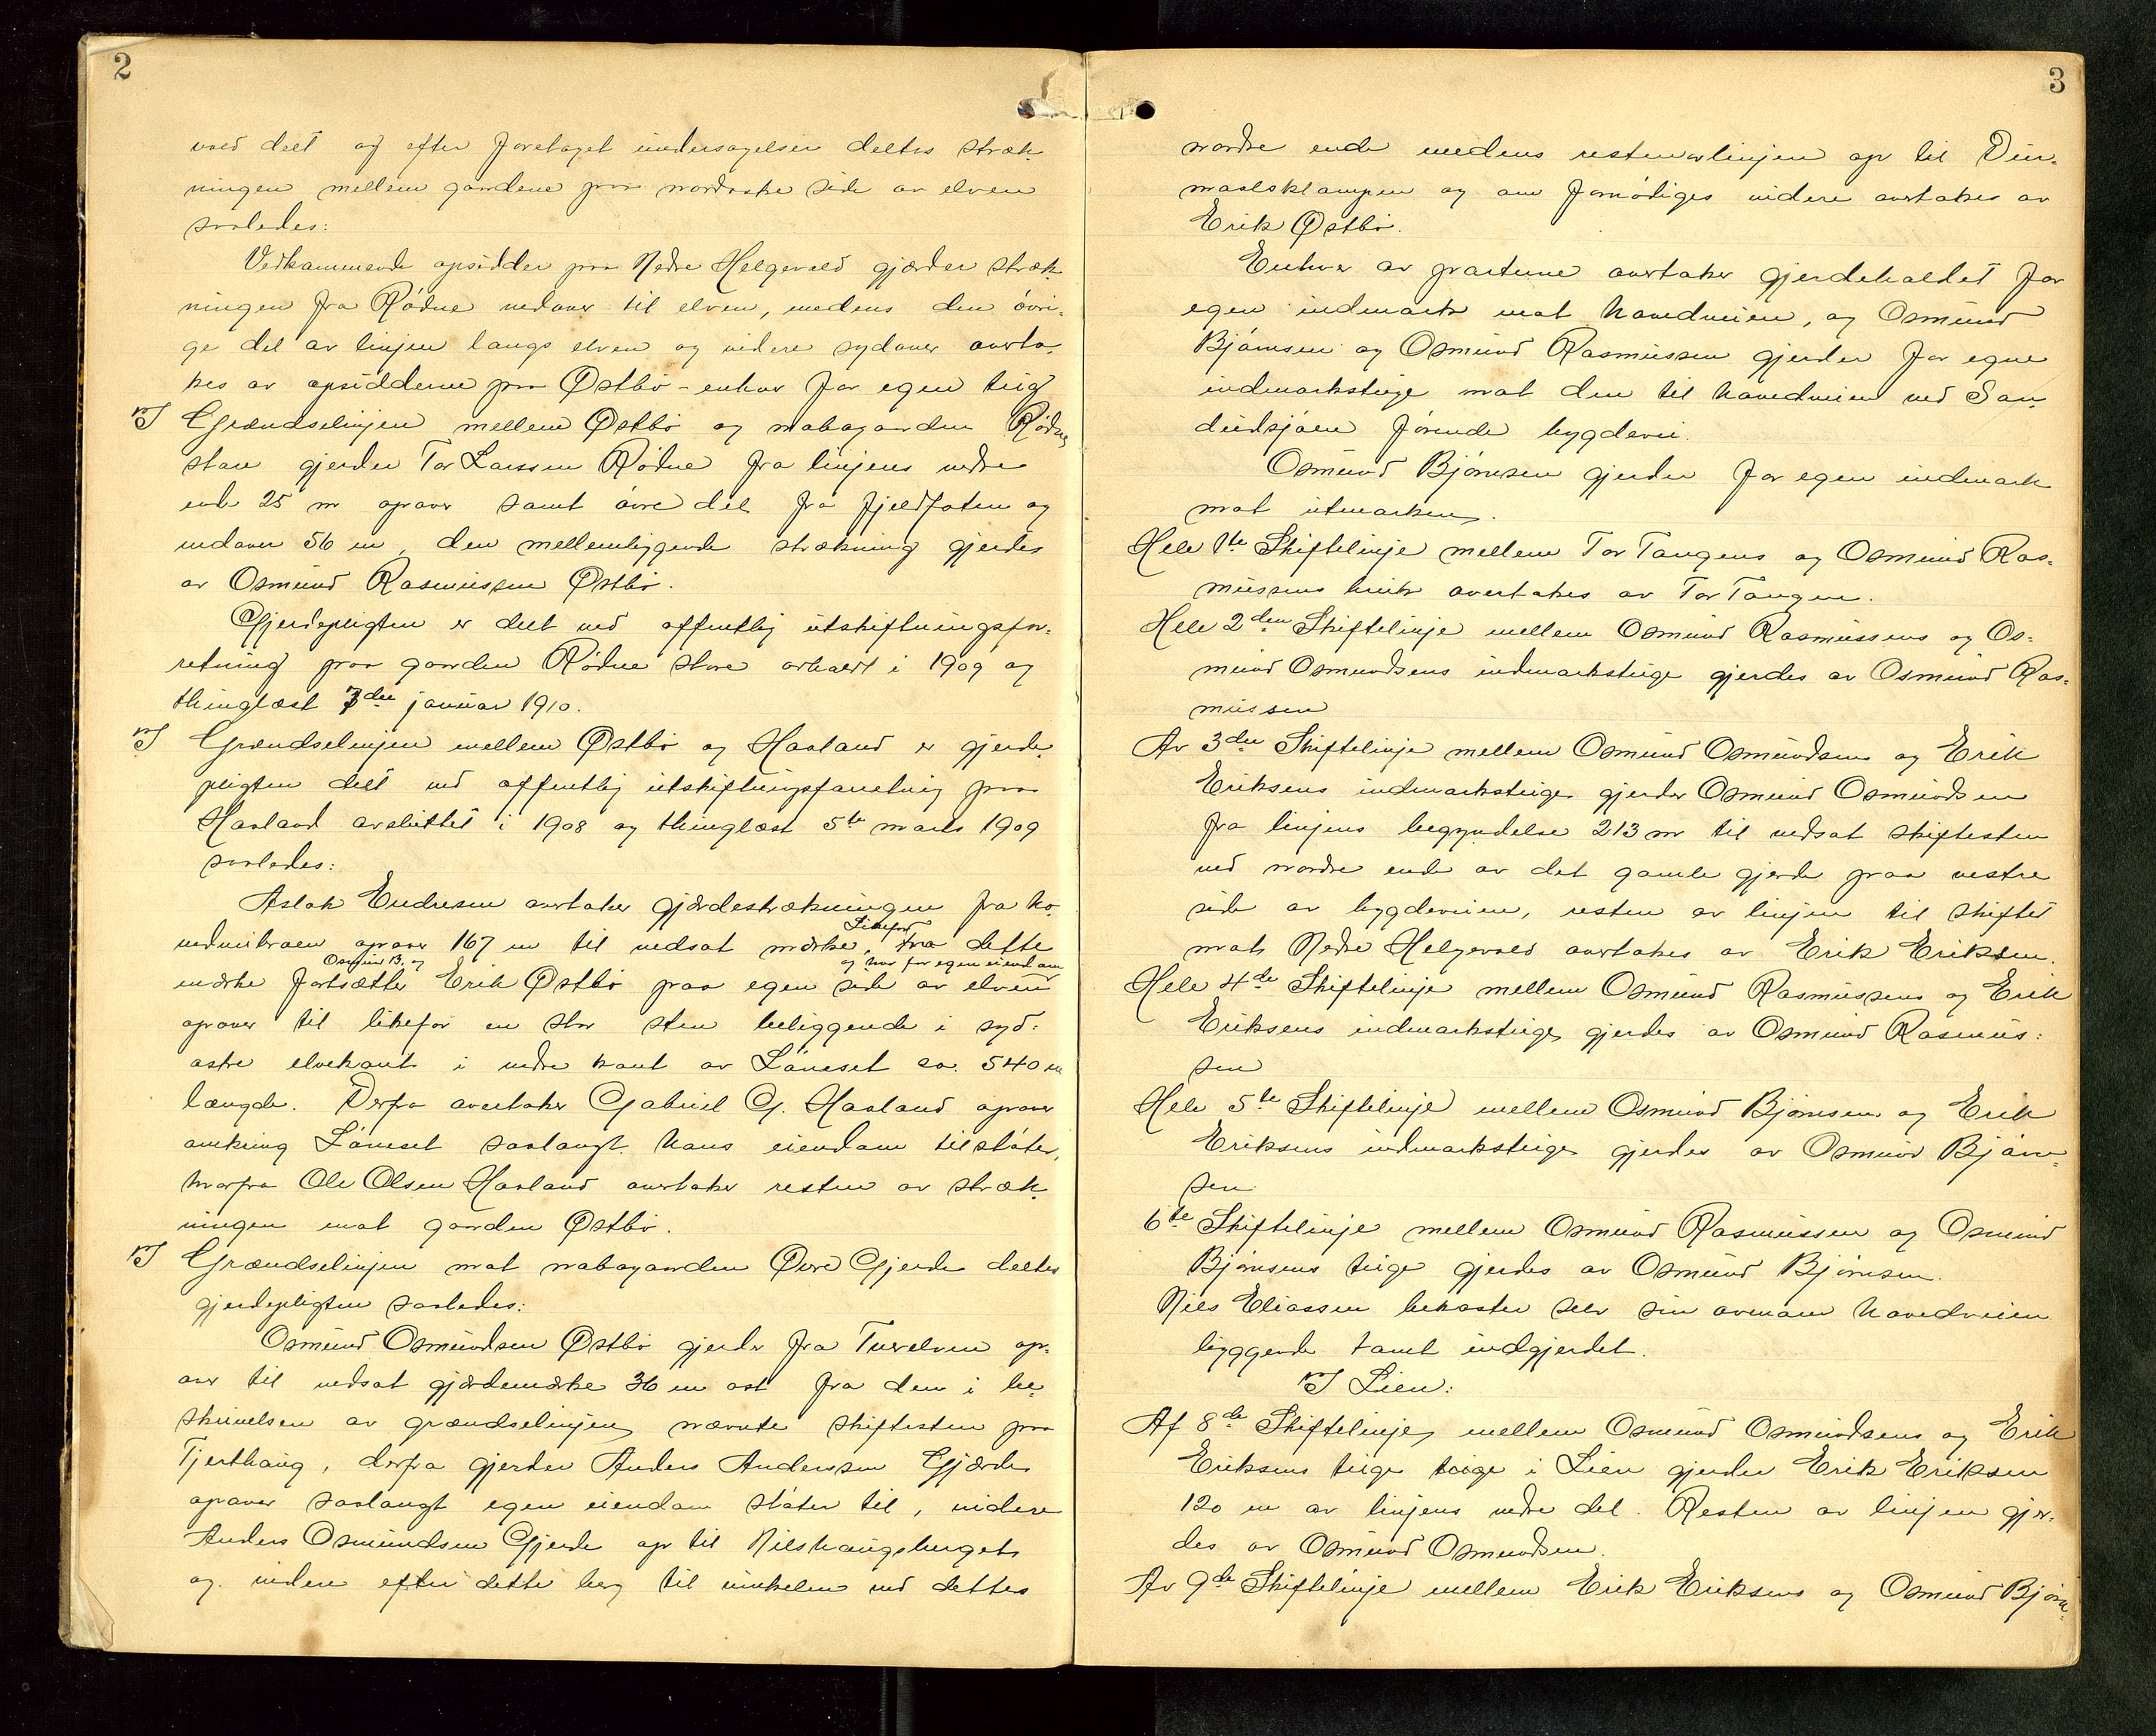 2
ved delt og efter foretaget undersøgelser deltes stræk-
ningen mellem gaardene paa nordøstre side av elven
saaledes:
Vedkommende opsidder paa Nedre Helgevold gjærder stræk-
ningen fra Rødne nedover til elven, medens den øvri-
ge del av linjen langs elven og videre sydover overta-
kes av opsidderne paa Østbø - enhver for egen teig
I Grændselinjen mellem Østbø og nabogaarden Rødne
store gjerder Tor Larssen Rødne fra linjens nedre
ende 25 m opover samt øvre del fra fjeldfoten og
nedover 56 m, den mellemliggende strækning gjerdes
av Osmund Rasmussen Østbø.
Gjerdepligten er delt ved offentlig utskiftningsfor-
retning paa gaarden Rødne store avholdt i 1909 og
thinglæst 7de januar 1910.
I Grændselinjen mellem Østbø og Havland er gjerde-
pligten delt ved offentlig utskiftningsforretning paa
Havland avsluttet i 1908 og thinglæst 5te marts 1909
saaledes:
Aslak Endresen overtaker gjærdestrækningen fra ho-
vedveibroen opover 167 m til nedsat mærke, Likefor fra dette
mærke fortsætter Osmund B. og Erik Østbø paa egen side av elven og hver for egen eiendom
opover til likefor en stor sten beliggende i syd-
østre elvekant i nedre kant av Løneset ca. 540 m
længde. Derfra overtaker Gabriel G. Havland opover
omkring Løneset saalangt hans eiendom tilstøter,
hvorfra Ole Olsen Havland overtaker resten av stræk-
ningen mot gaarden Østbø.
I Grændselinjen mot nabogaarden Øvre Gjerde deltes
gjerdepligten saaledes:
Osmund Osmundsen Østbø gjerder fra Tuerelven op-
over til nedsat gjærdemærke 36 m øst fra den i be-
skrivelsen av grændselinjen nævnte skiftesten paa
Tjerthaug, derfra gjerder Anders Anderssen Gjærde
opover saalangt egen eiendom støter til, videre
Anders Osmundsen Gjerde op til Nilshaugsberget
og videre efter dette berg til vinkelen ved dettes
3
nordre ende medens resten av linjen op til Din-
maalsklampen og om fornødiges videre overtakes av
Erik Østbø.
Enhver av parterne overtaker gjerdeholdet for
egen indmark mot hovedveien, og Osmund
Bjørnsen og Osmund Rasmussen gjerder for egne
indmarksteige mot den til hovedveien ved San-
deidsjøen førende bygdevei.
Osmund Bjørnsen gjerder for egen indmark
mot utmarken.
Hele 1te Skiftelinje mellem Tor Tangens og Osmund Ras-
mussens bruk overtakes av Tor Tangen.
Hele 2den Skiftelinje mellem Osmund Rasmussens og Os-
mund Osmundsens indmarksteige gjerdes av Osmund Ras-
mussen
Av 3die Skiftelinje mellem Osmund Osmundsens og Erik
Eriksens indmarksteige gjerder Osmund Osmundsen
fra linjens begyndelse 213 m til nedsat skiftesten
ved nordre ende av det gamle gjerde paa vestre
side av bygdeveien, resten av linjen til skiftet
mot Nedre Helgevold overtakes av Erik Eriksen.
Hele 4de Skiftelinje mellem Osmund Rasmussens og Erik
Eriksens indmarksteige gjerdes av Osmund Rasmus-
sen
Hele 5te Skiftelinje mellem Osmund Bjørnsens og Erik
Eriksens indmarksteige gjerdes av Osmund Bjørn-
sen
6te Skiftelinje mellem Osmund Rasmussen og Osmund
Bjørnsens teige gjerdes av Osmund Bjørnsen.
Nils Eliassen bekoster selv sin ovenom hovedveien
liggende tomt indgjerdet.
I Lien:
Af 8de Skiftelinje mellem Osmund Osmundsens og Erik
Eriksens teige teige i Lien gjerder Erik Eriksen
120 m av linjens nedre del. Resten av linjen gjer-
des av Osmund Osmundsen.
Av 9de Skiftelinje mellem Erik Eriksens og Osmund Bjørn-